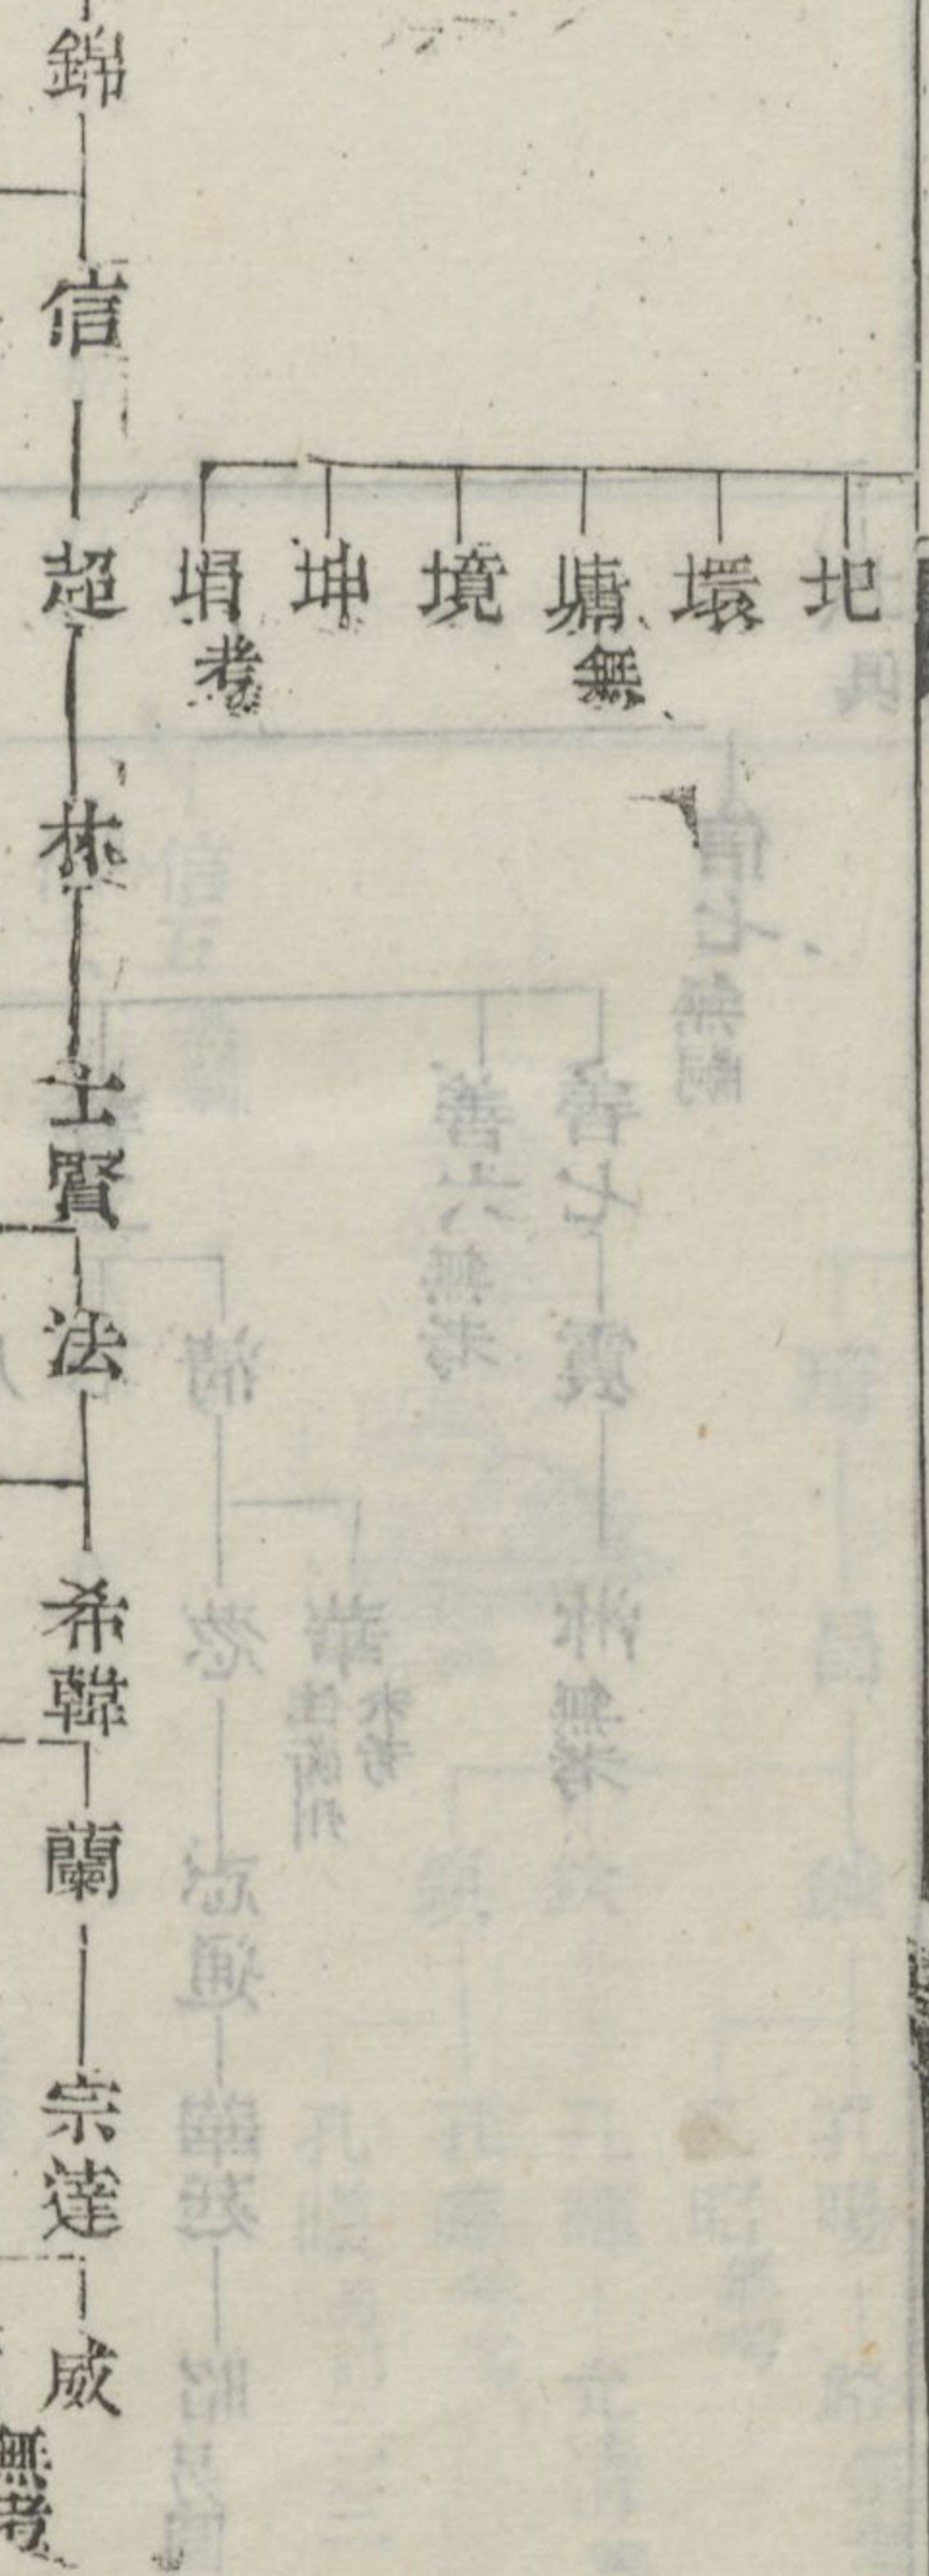 圯
環
塘
無
境
坤
埍
考
錦
信
超
林
士賢
法
希韓
蘭
宗達
威
無考